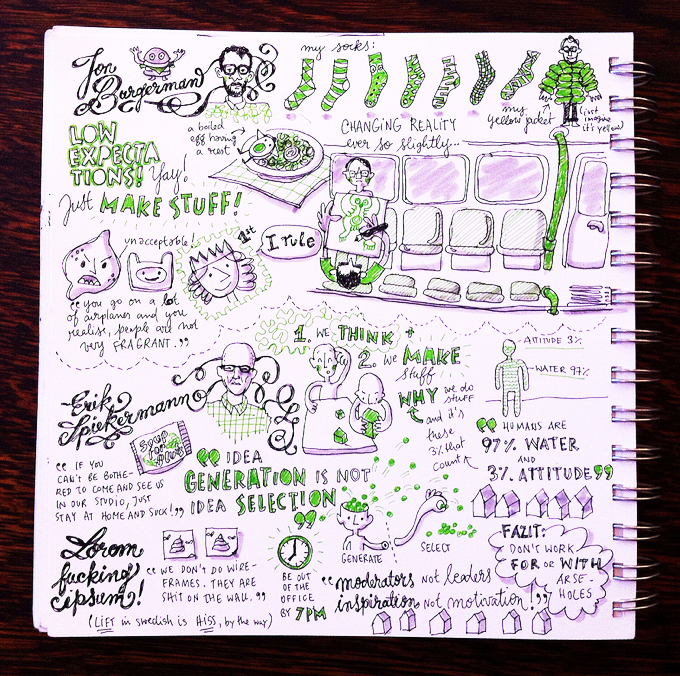 Jon
Burgerman
my socks:
my
yellow jacket
(just
imagine
it's yellow)
LOW
EXPECTA
TIONS! Yay!
a boiled
egg having
a rest
CHANGING REALITY
ever so slightly...
Just MAKE STUFF!
unacceptable!
1st
I rule
"you go on a lot
of airplanes and you
realise, people are not
very FRAGRANT."
1. WE THINK +
2. WE MAKE
stuff
WHY we do
stuff
and it's
these
3% that
count
ATTITUDE 3%
WATER 97%
"HUMANS ARE
97% WATER
AND
3% ATTITUDE"
Erik
Spiekermann
"IF YOU
CAN'T BE BOTHE-
RED TO COME AND SEE US
IN OUR STUDIO, JUST
STAY AT HOME AND SUCK!"
"IDEA
GENERATION IS NOT
IDEA SELECTION"
GENERATE
SELECT
Lorom
fucking
ipsum!
"WE DON'T DO WIRE-
FRAMES. THEY ARE
SHIT ON THE WALL."
(LIFT in swedish is HISS, by the way)
BE OUT
OF THE
OFFICE
BY 7PM
"moderators not leaders
inspiration not motivation!"
FAZIT:
DON'T WORK
FOR OR WITH
ARSE-
HOLES